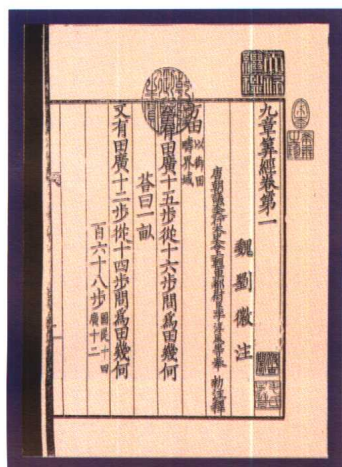 九章算經卷第一
魏劉徽注
唐朝議大夫行太史令上輕車都尉臣李淳風等奉 勑注釋
方田以御田疇界域
今有田廣十五步從十六步問為田幾何
荅曰一畝
又有田廣十二步從十四步問為田幾何
百六十八步圖從十四廣十二